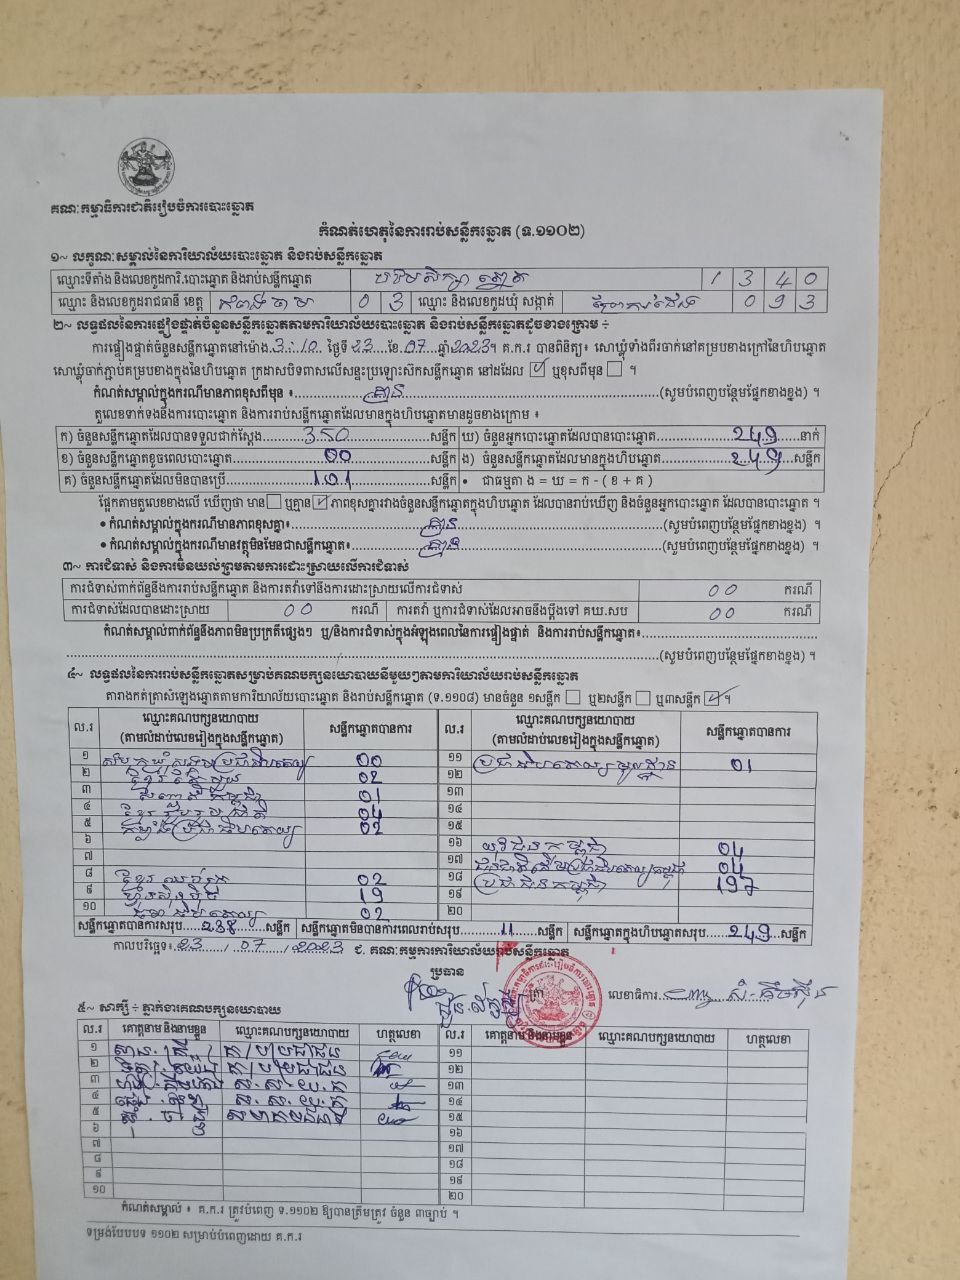 គណៈកម្មាធិការជាតិរៀបចំការបោះឆ្នោត
កំណត់ហេតុនៃការរាប់សន្លឹកឆ្នោត (ទ.១១០២)
១~ លក្ខណៈសម្គាល់នៃការិយាល័យបោះឆ្នោត និងរាប់សន្លឹកឆ្នោត
ឈ្មោះទីតាំង និងលេខកូដការិ.បោះឆ្នោត និងរាប់សន្លឹកឆ្នោត 1 3 4 0
ឈ្មោះ និងលេខកូដរាជធានី ខេត្ត កំពង់ចាម 0 3 ឈ្មោះ និងលេខកូដឃុំ សង្កាត់ 0 9 3
២~ លទ្ធផលនៃការផ្ទៀងផ្ទាត់ចំនួនសន្លឹកឆ្នោតតាមការិយាល័យបោះឆ្នោត និងរាប់សន្លឹកឆ្នោតដូចខាងក្រោម ÷
ការផ្ទៀងផ្ទាត់ចំនួនសន្លឹកឆ្នោតនៅម៉ោង 3:10 ថ្ងៃទី 23 ខែ 07 ឆ្នាំ 2023។ គ.ក.រ បានពិនិត្យ៖ សោឃ្លុំទាំងពីរចាក់នៅគម្របខាងក្រៅនៃហិបឆ្នោត
សោឃ្លុំចាក់ភ្ជាប់គម្របខាងក្នុងនៃហិបឆ្នោត ក្រដាសបិទពាសលើសន្ទះប្រឡោះស៊កសន្លឹកឆ្នោត នៅដដែល ☑ ឬខុសពីមុន ☐ ។
កំណត់សម្គាល់ក្នុងករណីមានភាពខុសពីមុន ៖ គ្មាន (សូមបំពេញបន្ថែមផ្នែកខាងខ្នង) ។
តួលេខទាក់ទងនឹងការបោះឆ្នោត និងការរាប់សន្លឹកឆ្នោតដែលមានក្នុងហិបឆ្នោតមានដូចខាងក្រោម ៖
ក) ចំនួនសន្លឹកឆ្នោតដែលបានទទួលជាក់ស្តែង 350 សន្លឹក ឃ) ចំនួនអ្នកបោះឆ្នោតដែលបានបោះឆ្នោត 249 នាក់
ខ) ចំនួនសន្លឹកឆ្នោតខូចពេលបោះឆ្នោត 00 សន្លឹក ង) ចំនួនសន្លឹកឆ្នោតដែលមានក្នុងហិបឆ្នោត 249 សន្លឹក
គ) ចំនួនសន្លឹកឆ្នោតដែលមិនបានប្រើ 101 សន្លឹក • ជាធម្មតា ង = ឃ = ក - ( ខ + គ )
ផ្អែកតាមតួលេខខាងលើ ឃើញថា មាន ☐ ឬគ្មាន ☑ ភាពខុសគ្នារវាងចំនួនសន្លឹកឆ្នោតក្នុងហិបឆ្នោត ដែលបានរាប់ឃើញ និងចំនួនអ្នកបោះឆ្នោត ដែលបានបោះឆ្នោត ។
• កំណត់សម្គាល់ក្នុងករណីមានភាពខុសគ្នា៖ គ្មាន (សូមបំពេញបន្ថែមផ្នែកខាងខ្នង) ។
• កំណត់សម្គាល់ក្នុងករណីមានវត្ថុមិនមែនជាសន្លឹកឆ្នោត៖ គ្មាន (សូមបំពេញបន្ថែមផ្នែកខាងខ្នង) ។
៣~ ការជំទាស់ និងការមិនយល់ព្រមតាមការដោះស្រាយលើការជំទាស់
ការជំទាស់ពាក់ព័ន្ធនឹងការរាប់សន្លឹកឆ្នោត និងការតវ៉ាទៅនឹងការដោះស្រាយលើការជំទាស់ 00 ករណី
ការជំទាស់ដែលបានដោះស្រាយ 00 ករណី ការតវ៉ា ឬការជំទាស់ដែលអាចនឹងប្តឹងទៅ គឃ.សប 00 ករណី
កំណត់សម្គាល់ពាក់ព័ន្ធនឹងភាពមិនប្រក្រតីផ្សេងៗ ឬ/និងការជំទាស់ក្នុងអំឡុងពេលនៃការផ្ទៀងផ្ទាត់ និងការរាប់សន្លឹកឆ្នោត៖
(សូមបំពេញបន្ថែមផ្នែកខាងខ្នង) ។
៤~ លទ្ធផលនៃការរាប់សន្លឹកឆ្នោតសម្រាប់គណបក្សនយោបាយនីមួយៗតាមការិយាល័យរាប់សន្លឹកឆ្នោត
តារាងកត់ត្រាសំឡេងឆ្នោតតាមការិយាល័យបោះឆ្នោត និងរាប់សន្លឹកឆ្នោត (ទ.១១០៨) មានចំនួន ១សន្លឹក ☐ ឬ២សន្លឹក ☐ ឬ៣សន្លឹក ☑ ។
ល.រ ឈ្មោះគណបក្សនយោបាយ (តាមលំដាប់លេខរៀងក្នុងសន្លឹកឆ្នោត) សន្លឹកឆ្នោតបានការ ល.រ ឈ្មោះគណបក្សនយោបាយ (តាមលំដាប់លេខរៀងក្នុងសន្លឹកឆ្នោត) សន្លឹកឆ្នោតបានការ
១ សំបុកឃ្មុំសង្គមប្រជាធិបតេយ្យ 00 ១១ ប្រជាធិបតេយ្យមូលដ្ឋាន 01
២ 02 ១២
៣ 01 ១៣
៤ ខ្មែររួបរួមជាតិ 04 ១៤
៥ កម្លាំងប្រជាធិបតេយ្យ 02 ១៥
៦ ១៦ យុវជនកម្ពុជា 04
៧ ១៧ ជនជាតិដើមប្រជាធិបតេយ្យកម្ពុជា 04
៨ ខ្មែរឈប់ក្រ 02 ១៨ ប្រជាជនកម្ពុជា 197
៩ ហ្វ៊ុនស៊ិនប៉ិច 19 ១៩
១០ 02 ២០
សន្លឹកឆ្នោតបានការសរុប 238 សន្លឹក សន្លឹកឆ្នោតមិនបានការពេលរាប់សរុប 11 សន្លឹក សន្លឹកឆ្នោតក្នុងហិបឆ្នោតសរុប 249 សន្លឹក
កាលបរិច្ឆេទ៖ 23 / 07 / 2023 ជ. គណៈកម្មការការិយាល័យរាប់សន្លឹកឆ្នោត
ប្រធាន
ត្រា លេខាធិការ
៥~ សាក្សី ÷ ភ្នាក់ងារគណបក្សនយោបាយ
ល.រ គោត្តនាម និងនាមខ្លួន ឈ្មោះគណបក្សនយោបាយ ហត្ថលេខា ល.រ គោត្តនាម និងនាមខ្លួន ឈ្មោះគណបក្សនយោបាយ ហត្ថលេខា
១ ១១
២ ១២
៣ ១៣
៤ ១៤
៥ ១៥
៦ ១៦
៧ ១៧
៨ ១៨
៩ ១៩
១០ ២០
កំណត់សម្គាល់ ៖ គ.ក.រ ត្រូវបំពេញ ទ.១១០២ ឱ្យបានត្រឹមត្រូវ ចំនួន ៣ច្បាប់ ។
ទម្រង់បែបបទ ១១០២ សម្រាប់បំពេញដោយ គ.ក.រ